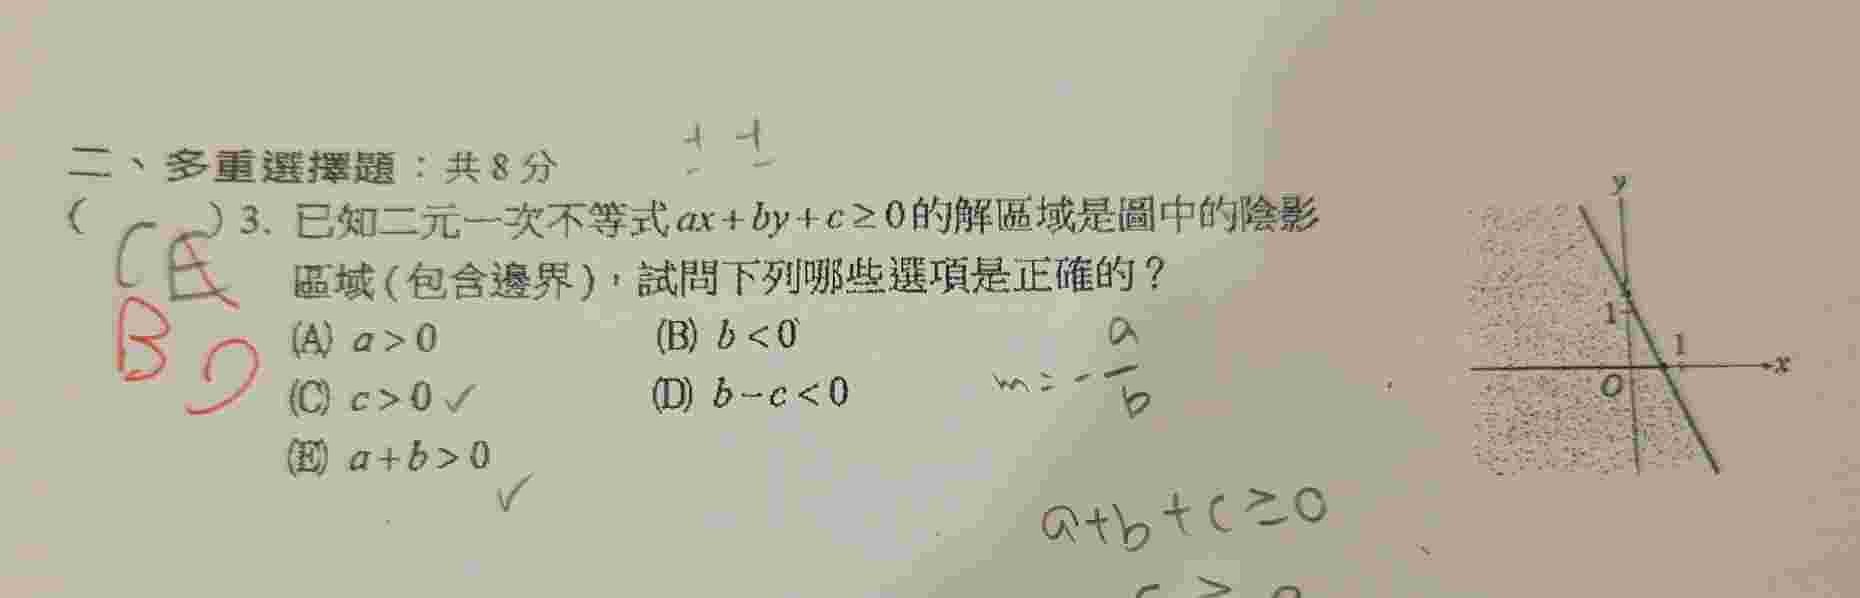 ± ±
二、多重選擇題：共8分
( CE ) 3. 已知二元一次不等式 ax + by + c ≥ 0 的解區域是圖中的陰影
區域(包含邊界)，試問下列哪些選項是正確的？
B D
(A) a > 0 (B) b < 0
(C) c > 0 ✓ (D) b − c < 0
(E) a + b > 0 ✓
m = - a/b
a+b+c ≥ 0
c ≥ 0
y
1
1
O
x